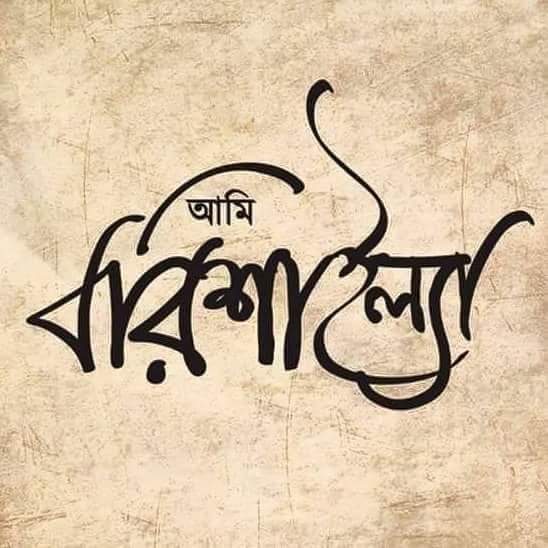 আমি
বরিশাইল্যা